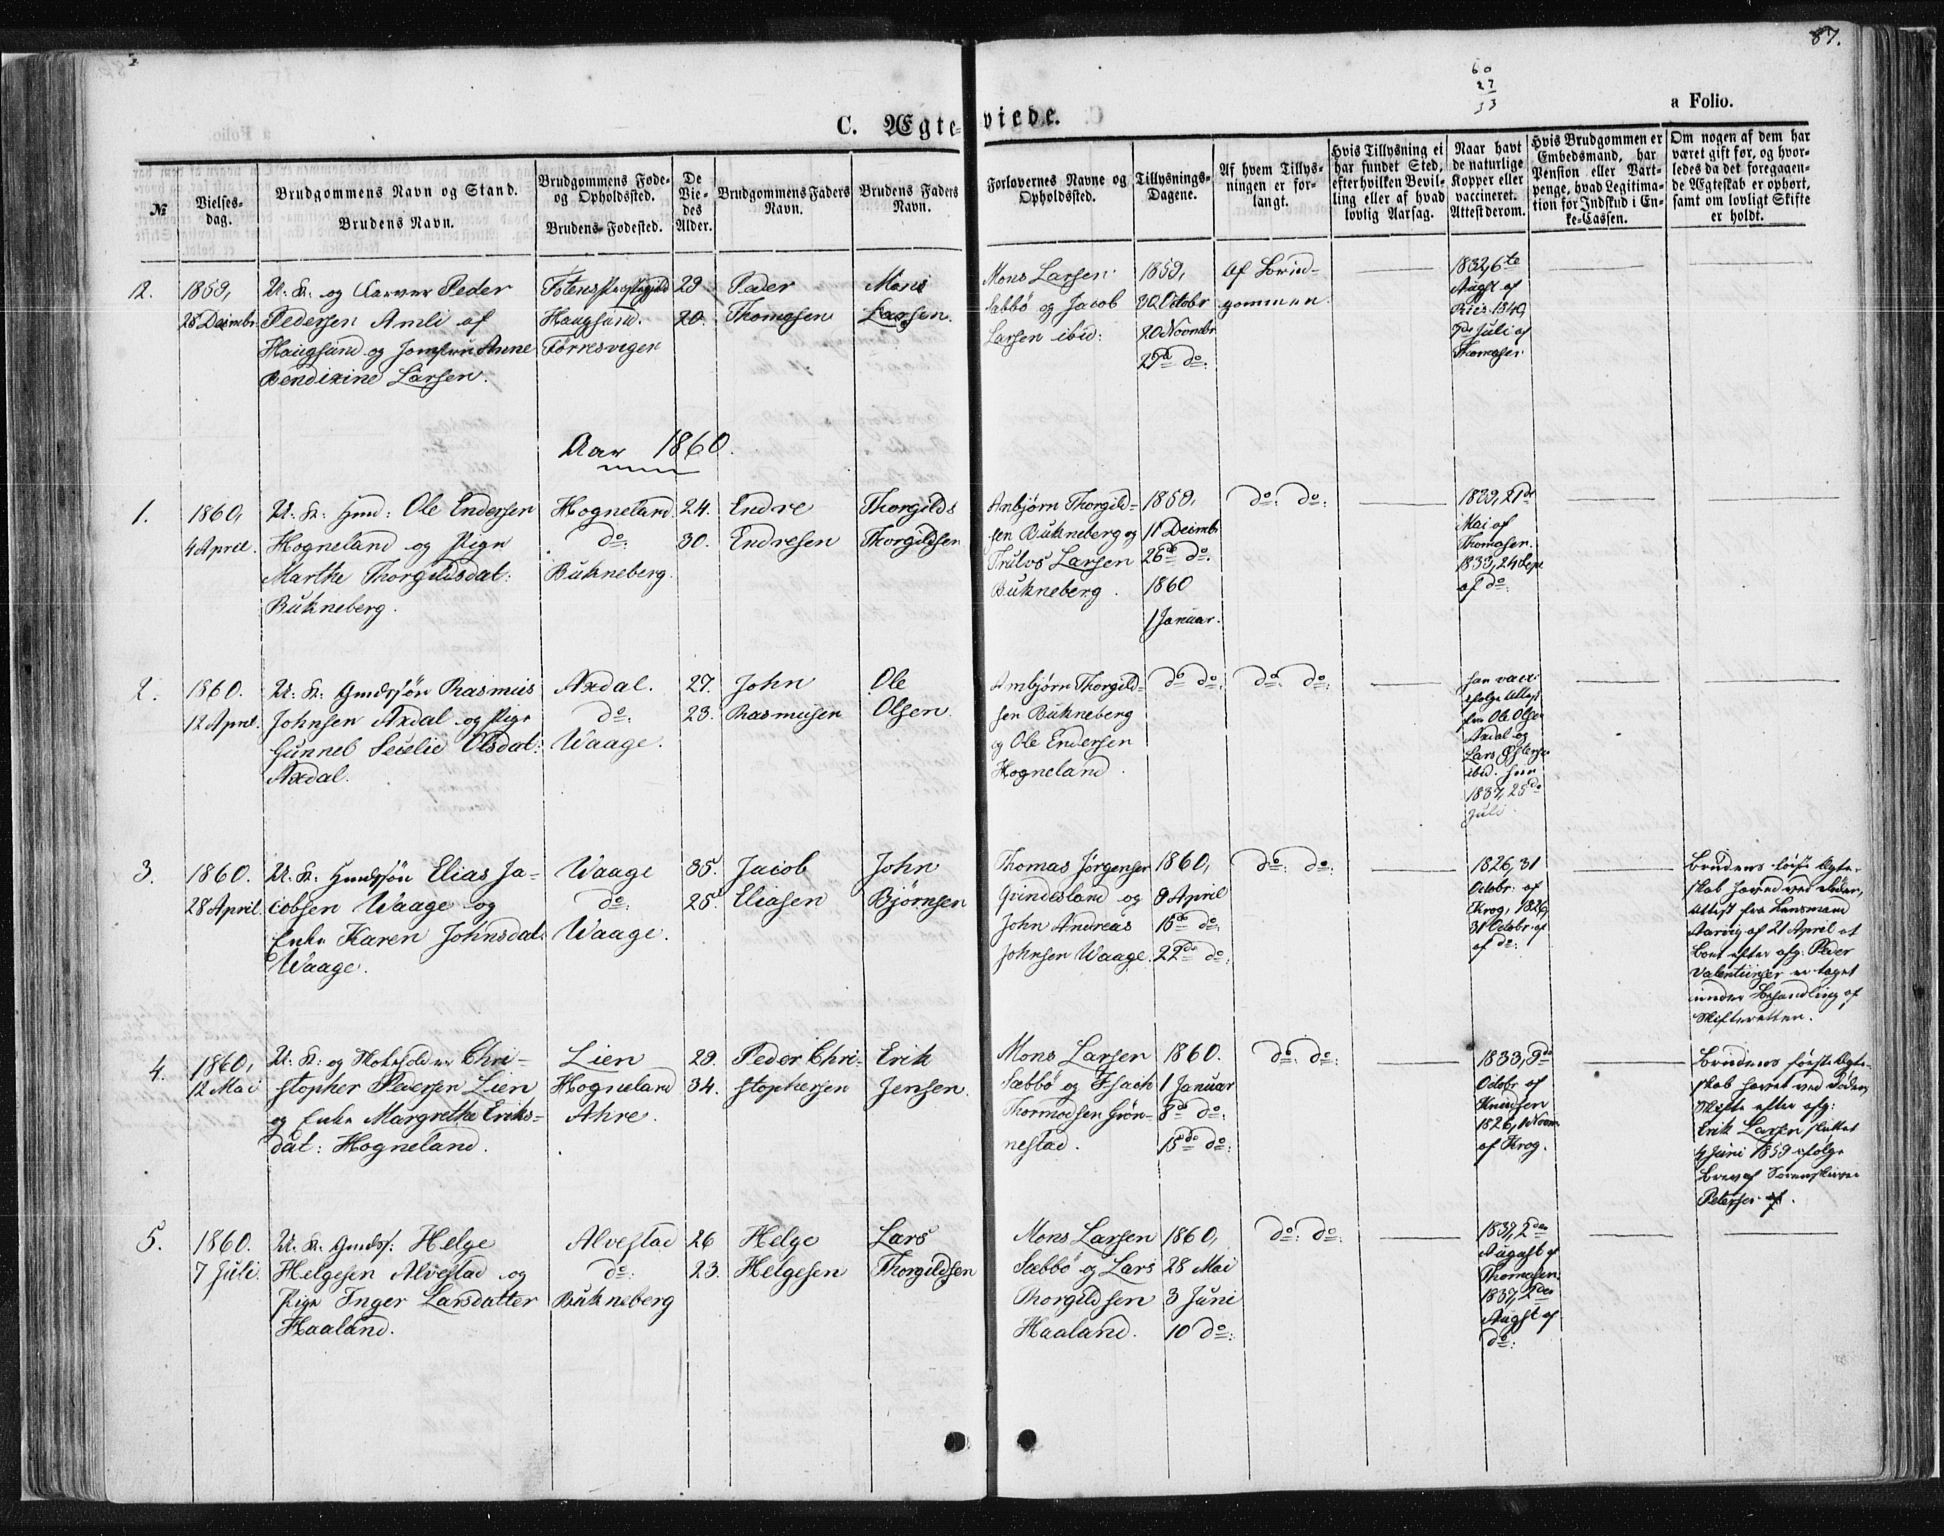 87.
60
27
33
a Folio.
C. Ægteviede.
№
Vielsesdag.
Brudgommens Navn og Stand.
Brudens Navn.
Brudgommens Føde- og Opholdssted.
Brudens Fødested.
De Viedes Alder.
Brudgommens Faders Navn.
Brudens Faders Navn.
Forlovernes Navne og Opholdssted.
Tillysnings-Dagene.
Af hvem Tillysningen er forlangt.
Hvis Tillysning ei har fundet Sted, efter hvilken Bevilling eller af hvad lovlig Aarsag.
Naar havt de naturlige Kopper eller vaccineret. Attest derom.
Hvis Brudgommen er Embedsmand, har Pension eller Vartpenge, hvad Legitimation for Indskud i Enke-Cassen.
Om nogen af dem har været gift før, og hvorledes da det foregaaende Ægteskab er ophørt, samt om lovligt Skifte er holdt.
12.
1859,
28 Decmbr.
U: K: og Farver Peder
Pedersen Amli af
Haugsund og Jomfru Anne
Bendixine Larsen.
Totens Præstegjeld
Haugsund.
Førresvigen
29
20.
Peder
Thomasen
Mons
Larsen.
Mons Larsen
Sæbbø og Jacob
Larsen ibid:
1859,
30 Octobr
20 Novmbr
27de do:
Af Brud-
gommen.
1832, 6te
Augst af
Riis 1840,
7de Juli af
Thomasen
Aar 1860.
1.
1860,
4 April.
U: K: Gmd: Ole Endersen
Hogneland og Pige
Marthe Thorgildsdat:
Bukneberg.
Hogneland.
do:
Bukneberg.
24.
30.
Endre
Endresen
Thorgilds
Thorgildsen
Anbjørn Thorgild-
sen Bukneberg og
Trulvs Larsen
Bukneberg.
1859,
11 Decmbr
26de do.
1860
1 Januar.
do: do:
1839, 21de
Mai af
Thomasen.
1833, 24 Sept
af do:
2.
1860.
12 April.
U: K: Gmdssøn Rasmus
Johnsen Axdal og Pige
Gunneb Secelie Olsdat:
Axdal.
Axdal.
do:
Waage.
27.
23.
John
Rasmusen
Ole
Olsen
Ambjørn Thorgild-
sen Bukneberg
og Ole Endersen
Hogneland.
do do:
do. do:
han vacc:
ifølge Attest
fra Ole Olsen
Axdal og
Lars
ibid. hun
1837, 25de
Juli.
3.
1860.
28 April.
U: K: Gmdssøn Elias Ja-
cobsen Waage og
Enke Karen Johnsdat.
Waage.
Waage
do:
Waage.
35.
25
Jacob
Eliasen
John
Bjørnsen
Thomas Jørgensen
Grindesland og
John Andreas
Johnsen Waage.
1860,
9 April
15de do:
22de do:
do: do:
1826, 31
Octobr. af
Krog, 1826,
31 Octobr. af
af do:
Brudens første Ægte-
skab hævet ved Døden,
Attest fra Lensmand
Aarvig af 21 April at
Boet efter afg: Peder
Valentinsen er taget
under Behandling af
Skifteretten.
4.
1860,
12 Mai
U: K: og Chri-
stopher Pedersen Lien
og Enke Margrethe Eriks-
dat: Hogneland.
Lien
Hogneland
Ahre.
29.
34.
Peder Chri-
stophersen
Erik
Jensen.
Mons Larsen
Sæbbø og Isach
Thormodsen Grøn-
nestad.
1860.
1 Januar
8de do:
15de do:
do: do:
1833, 9de
Octobr af
Knudsen
1826, 1 Novm
af Krog.
Brudens første Ægte-
skab hævet ved Døden,
Skifte efter afg:
Erik Larsen sluttet
4 Juni 1859 ifølge
Brev af Sorenskriver
Petersen.
5.
1860.
7 Juli.
U: K: Gmdss: Helge
Helgesen Alvestad og
Pige Inger Larsdatter
Haaland.
Alvestad
do:
Bukneberg
26
23.
Helge
Helgesen
Lars
Thorgildsen
Mons Larsen
Sæbbø og Lars
Thorgildsen
Haaland.
1860,
28 Mai
3 Juni
10 do:
do: do:
1837, 2den
August af
Thomasen.
1837, 2den
Augst af
do: